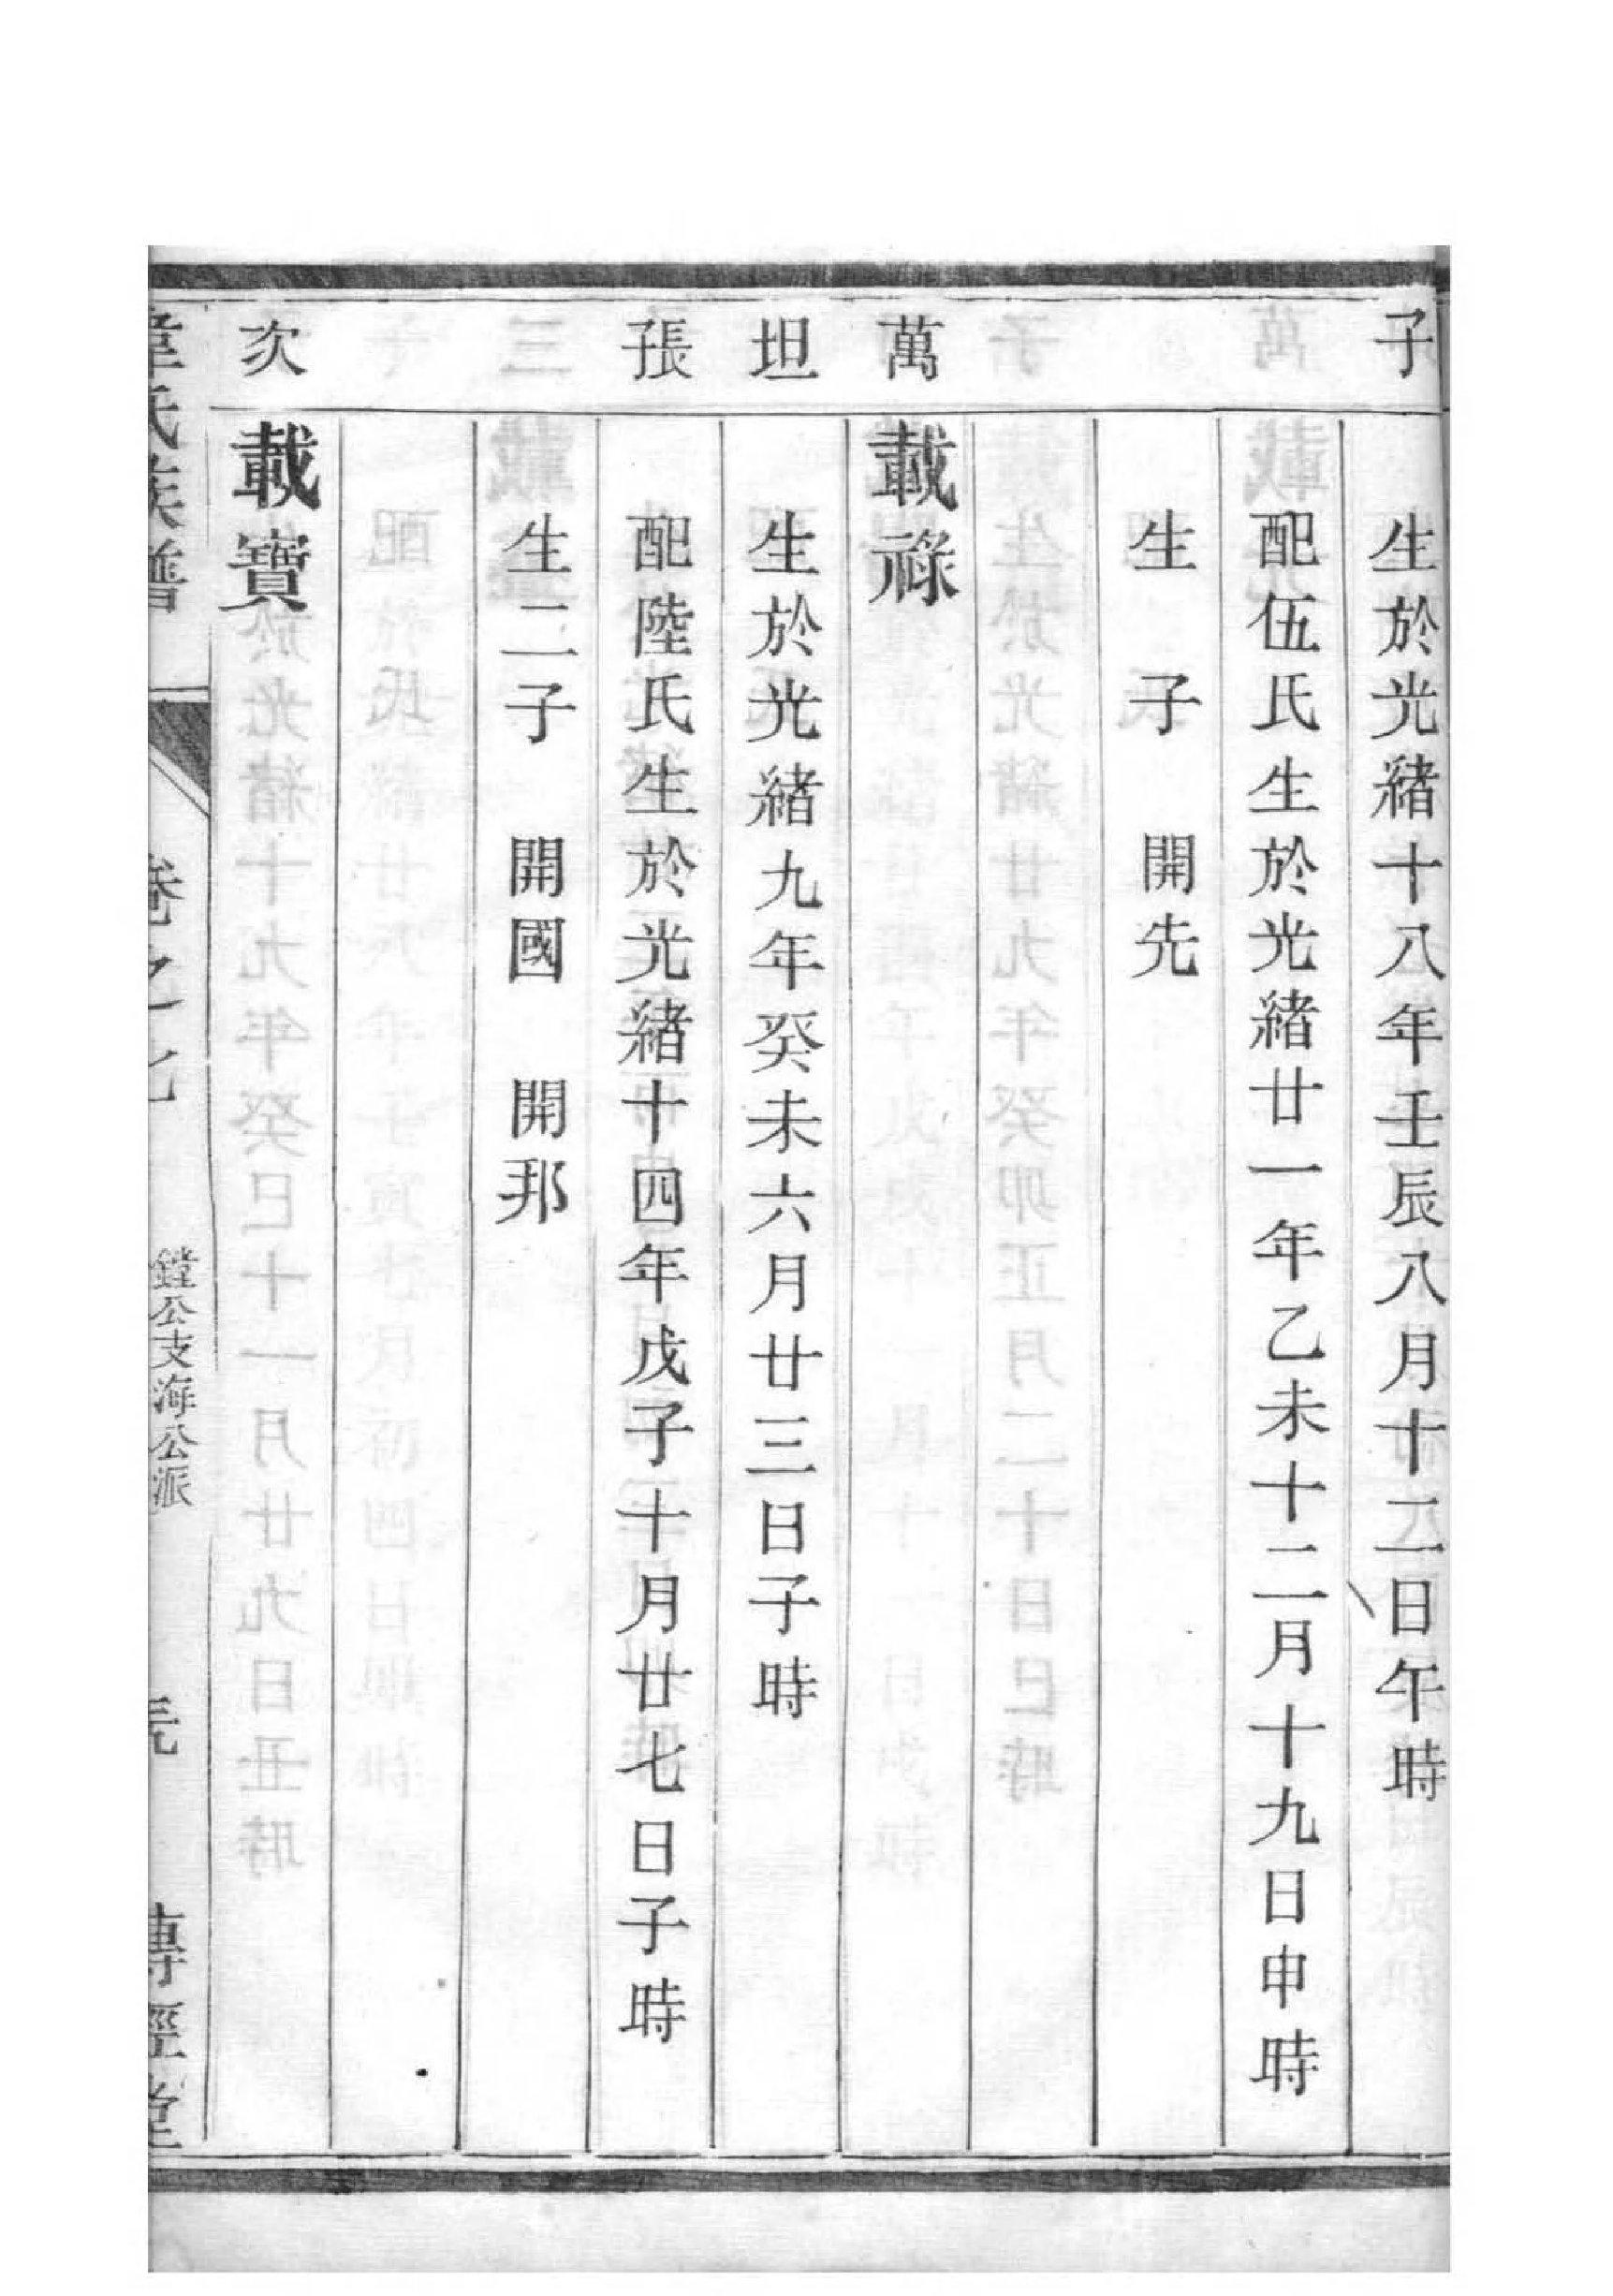 子
生於光緒十八年壬辰八月十二日午時
配伍氏生於光緒廿一年乙未十二月十九日申時
生 子 開先
萬
載祿
坦
生於光緒九年癸未六月廿三日子時
張
配陸氏生於光緒十四年戊子十月廿七日子時
生二子 開國 開邦
次
載寶
韋氏族譜
卷之七
鏜公支海公派
傳經堂